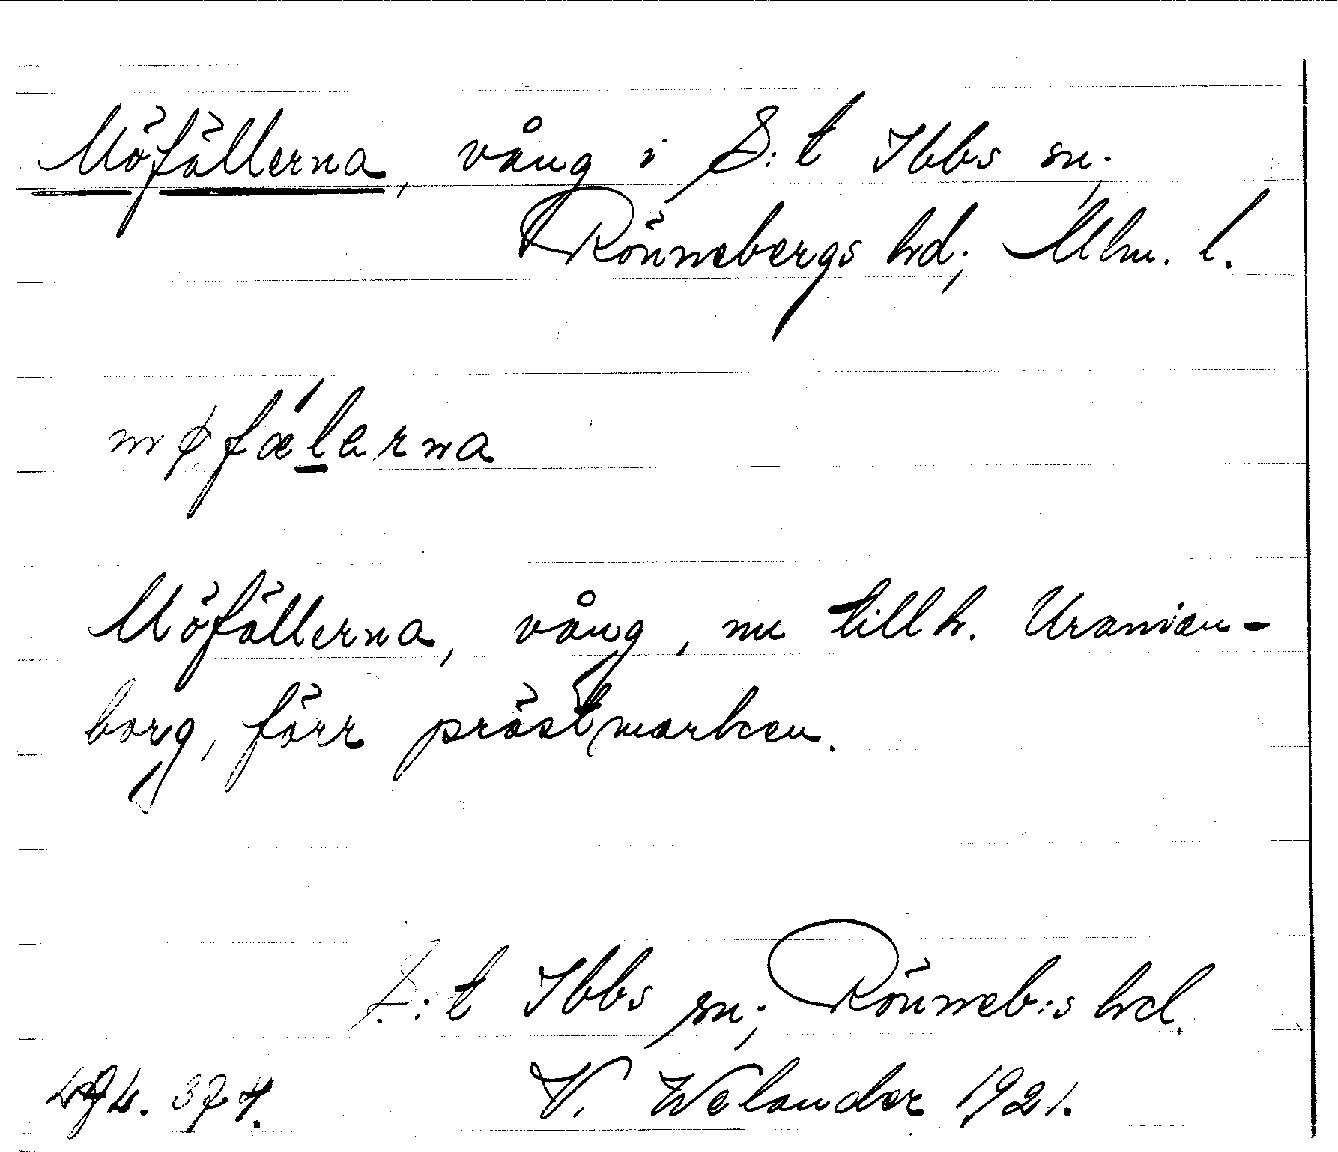 Möfällerna, vång i S:t Ibbs sn.
Rönnebergs hd; Mlm. l.
møfælerna
Möfällerna, vång, nu tillh. Uranien-
borg, förr prästmarken.
S:t Ibbs sn; Rönneb:s hd.
V. Welander 1921.